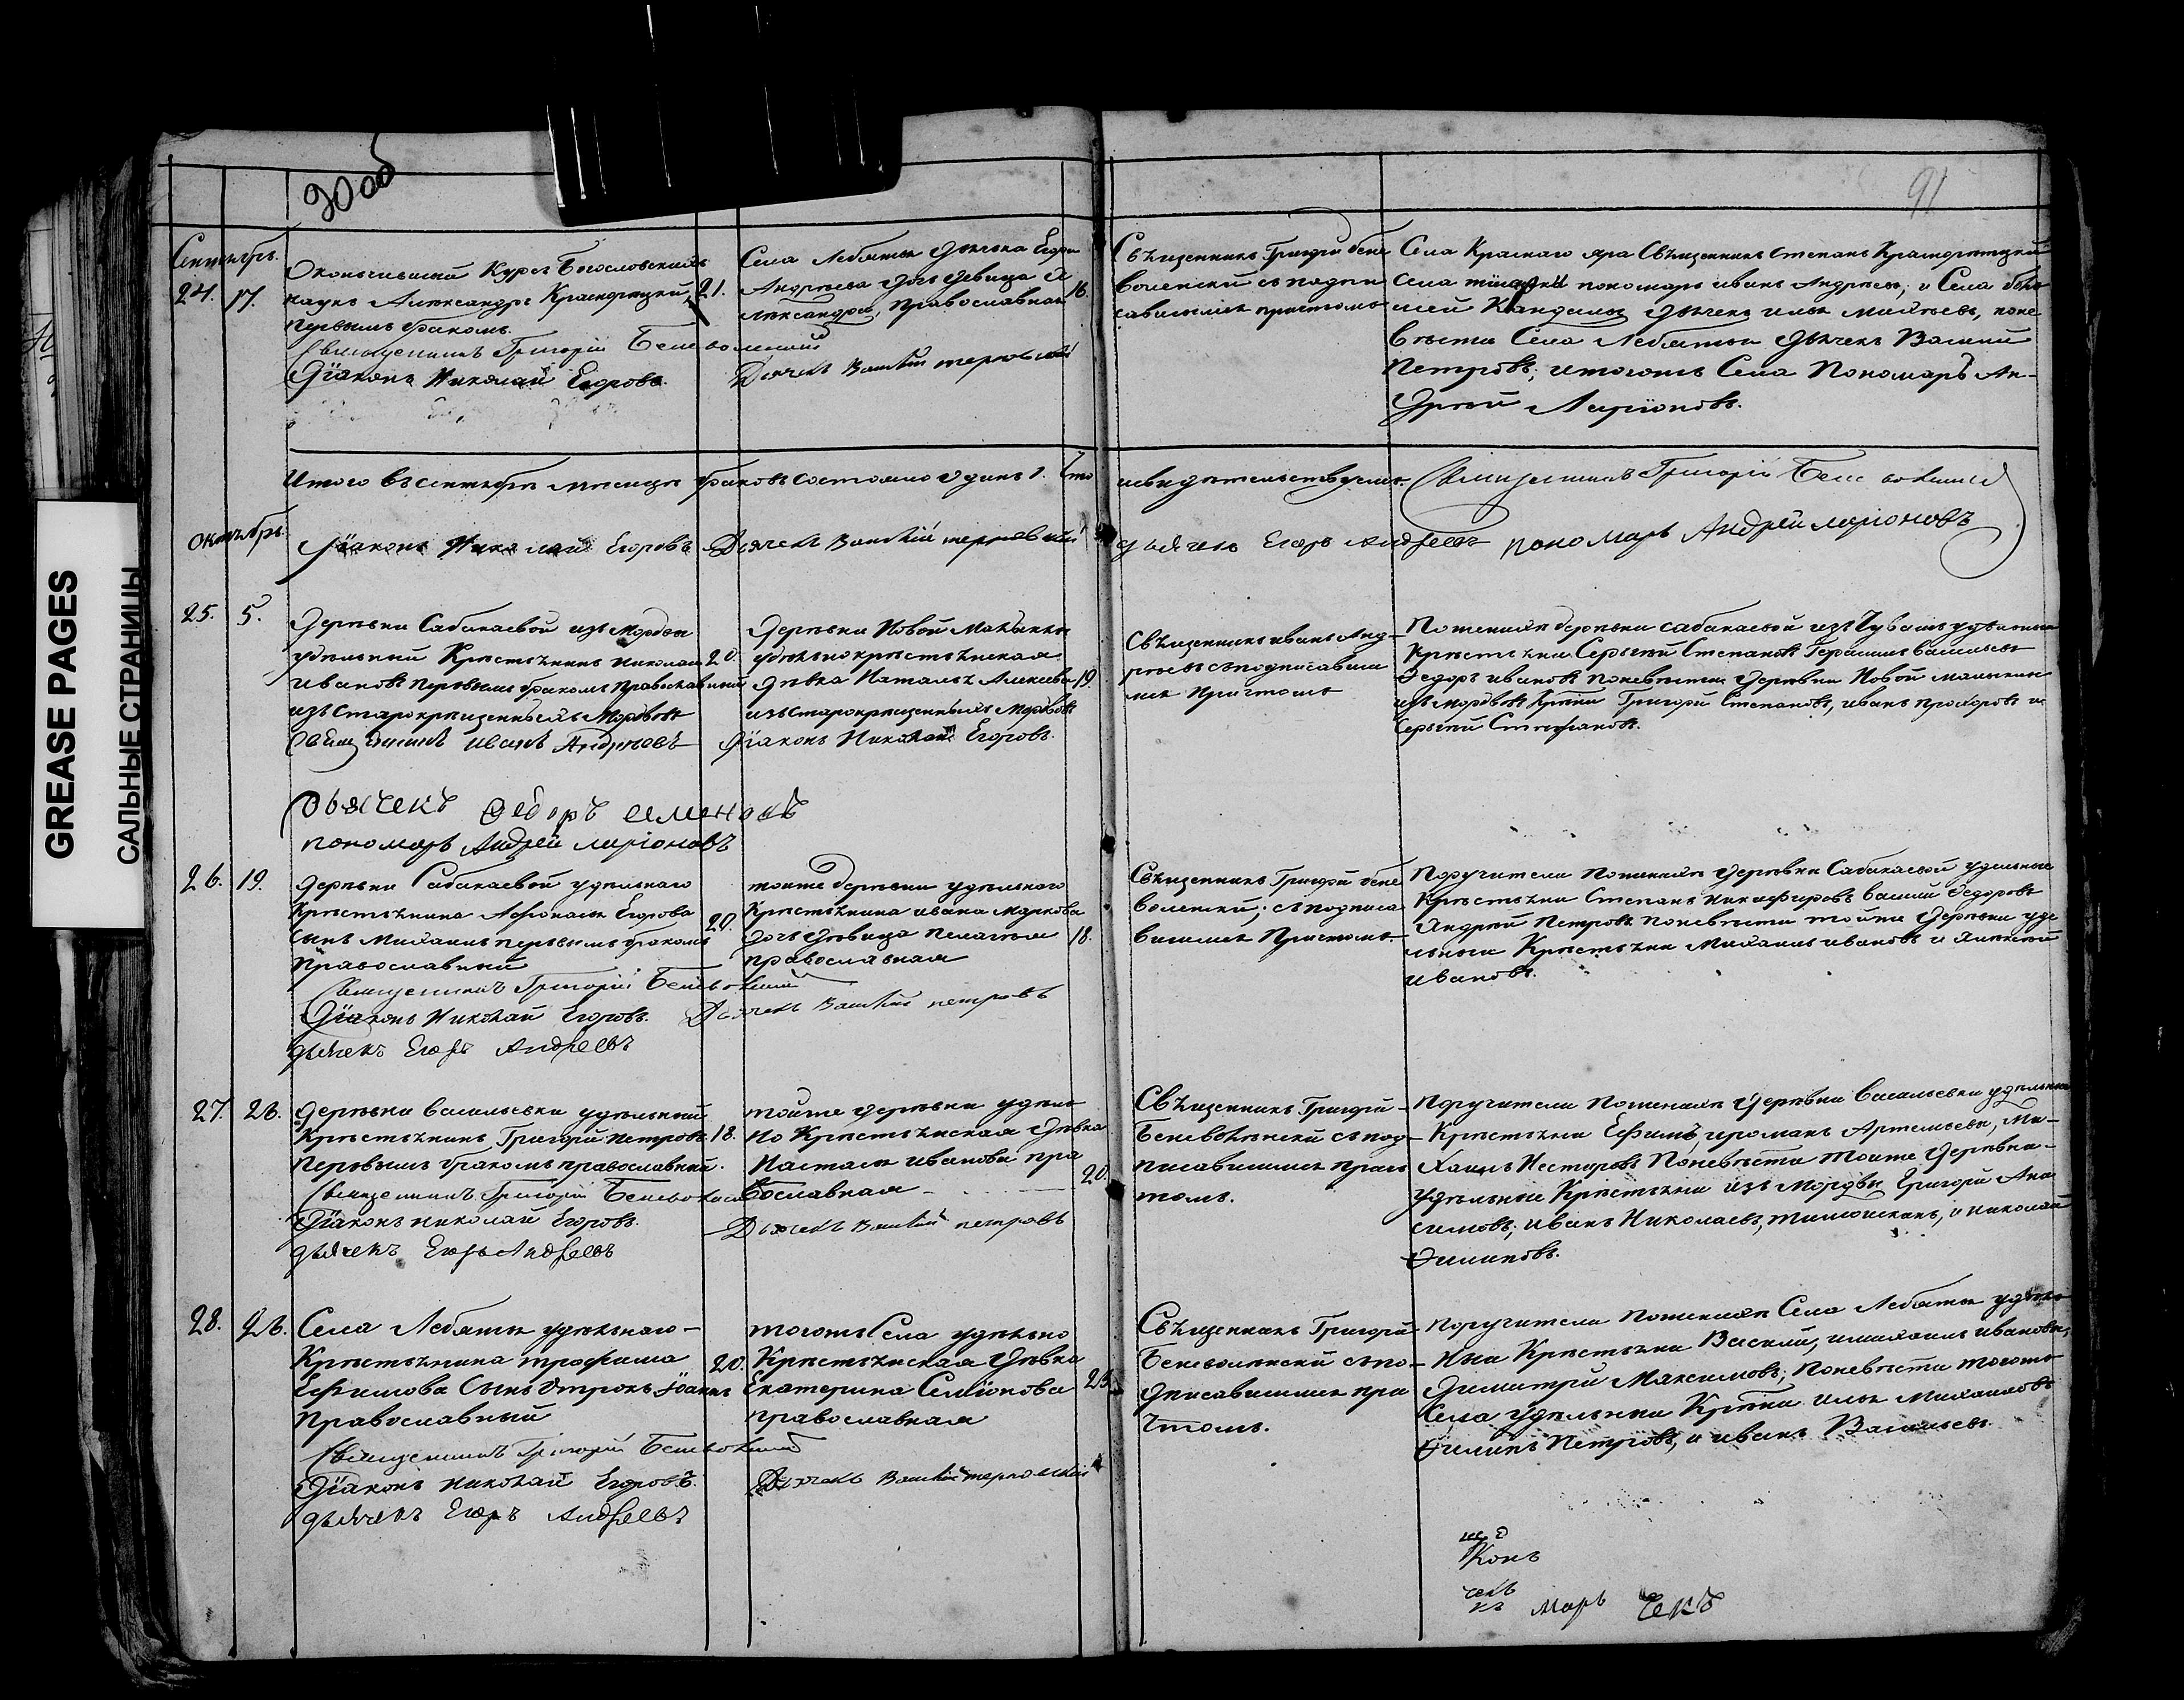 90об
91
GREASE PAGES
САЛЬНЫЕ СТРАНИЦЫ
Сентябрь.
24. 17.
Окончившій Курсъ Богословскихъ
наукъ Александръ Красноряцкій
первымъ бракомъ.
21.
Села Лебяжья дьячка Егора
Андреева дочь девица А
лександра, Православная
16.
Священникъ Григорій Бене
воленскій съ подпи
савшимся причтомъ
Села Краснаго яра Священникъ Степанъ Красноряцкій
Села пономарь иванъ Андреевъ, и Села боль
шой Кандалы дьячекъ илья поне
весте Села Лебяжья дьячекъ Василій
Петровъ; итогожъ Села Пономарь Ан-
дрей Ларіоновъ.
Священникъ Григорій Беневоленскій
Діаконъ Николай Егоровъ.
Дьячекъ Василій
Итого въ сентябре месяце браковъ состояло одинъ 1. Что
и свидетельствуемъ. Священникъ Григорій Беневоленскій
Октябрь.
Діаконъ Николай Егоровъ Дьячекъ Василій
дьячекъ Егоръ Андреевъ пономарь Андрей ларіоновъ
25. 5.
Деревни Сабакаевой изъ Мордвы
удельный Крестьянинъ Николай
ивановъ первымъ бракомъ Православный
изъ старокрещенныхъ Мордвовъ
20.
Деревни Новой Малыклы
удельнокрестьянская
девка Наталья Алексеева
изъ старокрещенныхъ Мордвовъ
19.
Священникъ иванъ Анд-
реевъ съ подписавши
мся Причтомъ
По женихе деревни сабакаевой изъ Чувашъ удельные
Крестьяни Сергей Степановъ Герасимъ Васильевъ
Федоръ ивановъ по невесте Деревни Новой малыклы
изъ мордвовъ Кртяни Григорій Степановъ, иванъ прохоровъ и
Сергей Стефановъ.
Священникъ иванъ Андреевъ
Діаконъ Николай Егоровъ.
дьячекъ Федоръ семеновъ
пономарь Андрей ларіоновъ
26. 19.
Деревни Сабакаевой удельнаго
Крестьянина Афонасья Егорова
сынъ Михаилъ первымъ бракомъ
Православный
20.
тойже деревни удельнаго
Крестьянина ивана Маркова
дочь девица Пелагея
православная
18.
Священникъ Григорій бене
воленскій; съ подписа
вшимся Причтомъ.
Поручители по женихе деревни Сабакаевой удельные
Крестьяни Степанъ Никифировъ Василій Федоровъ
Андрей Петровъ по невесте тойже деревни уде
льныи Крестьяни Михаилъ ивановъ и Алексей
ивановъ.
Священникъ Григорій Беневоленскій
Діаконъ Николай Егоровъ. Дьячекъ Василій петровъ
дьячекъ Егоръ Андреевъ
27. 26.
Деревни Васильевки удельный
Крестьянинъ Григорій Петровъ.
Первымъ бракомъ православный.
18.
тойже деревни удель
но Крестьянская девка
Настасья иванова пра
вославная
20.
Священникъ Григорій
Беневоленскій съ под-
писавшимся прич
томъ.
Поручители по женихе Деревни Васильевки удельные
Крестьяни Ефимъ, и романъ Артемьевы, Ми-
хаилъ Несторовъ по невесте тойже деревни
удельные Крестьяни изъ мордвы Григорій Ана
симовъ; иванъ Николаевъ, и николай
Филиповъ.
Священникъ Григорій Беневоленскій
Діаконъ николай Егоровъ.
Дьячекъ Василій петровъ
дьячекъ Егоръ Андреевъ
28. 26.
Села Лебяжья удельнаго
Крестьянина трофима
Ефимова Сынъ отрокъ Іоаннъ
Православный
20.
тогожъ Села удельно
Крестьянская девка
Екатерина Семіонова
православная
23.
Священникъ Григорій
Беневоленскій съ по-
дписавшимся при
чтомъ.
Поручители по женихе Села Лебяжья удель
ныи Крестьяни Василій, и михаилъ ивановы,
Димитрій Максимовъ; по невесте тогожъ
Села удельныи Кртяни илья Михаиловъ
Филипъ Петровъ, и иванъ Васильевъ.
Священникъ Григорій Беневоленскій
Діаконъ николай Егоровъ.
Дьячекъ Василій
дьячекъ Егоръ Андреевъ
конъ
чекъ
марь чекъ